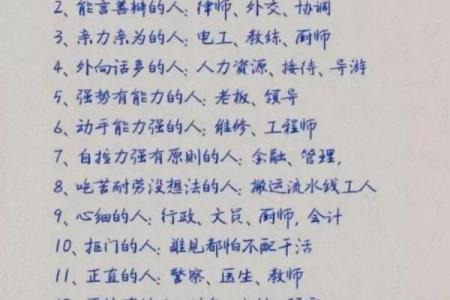 2、能言善辩的人：律师、外交、协调
3、亲力亲为的人：电工、教练、厨师
4、外向话多的人：人力资源、接待、导游
5、强势有能力的人：老板、领导
6、动手能力强的人：维修、工程师
7、自控力强有原则的人：金融、管理，
8、吃苦耐劳没想法的人：搬运流水线工人
9、心细的人：行政、文员、厨师，会计
10、抠门的人：谁见都怕不配干活
11、正直的人：警察、医生、教师